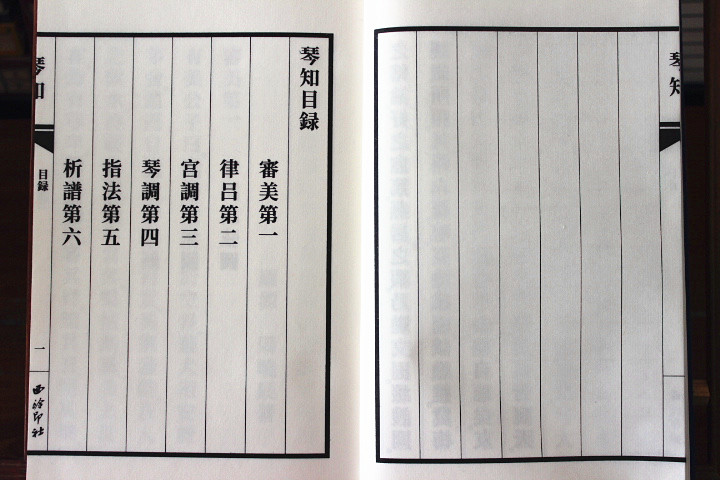 琴知
琴知目録
審美第一
律呂第二
宮調第三
琴調第四
指法第五
析譜第六
琴知
目録
一
西泠印社